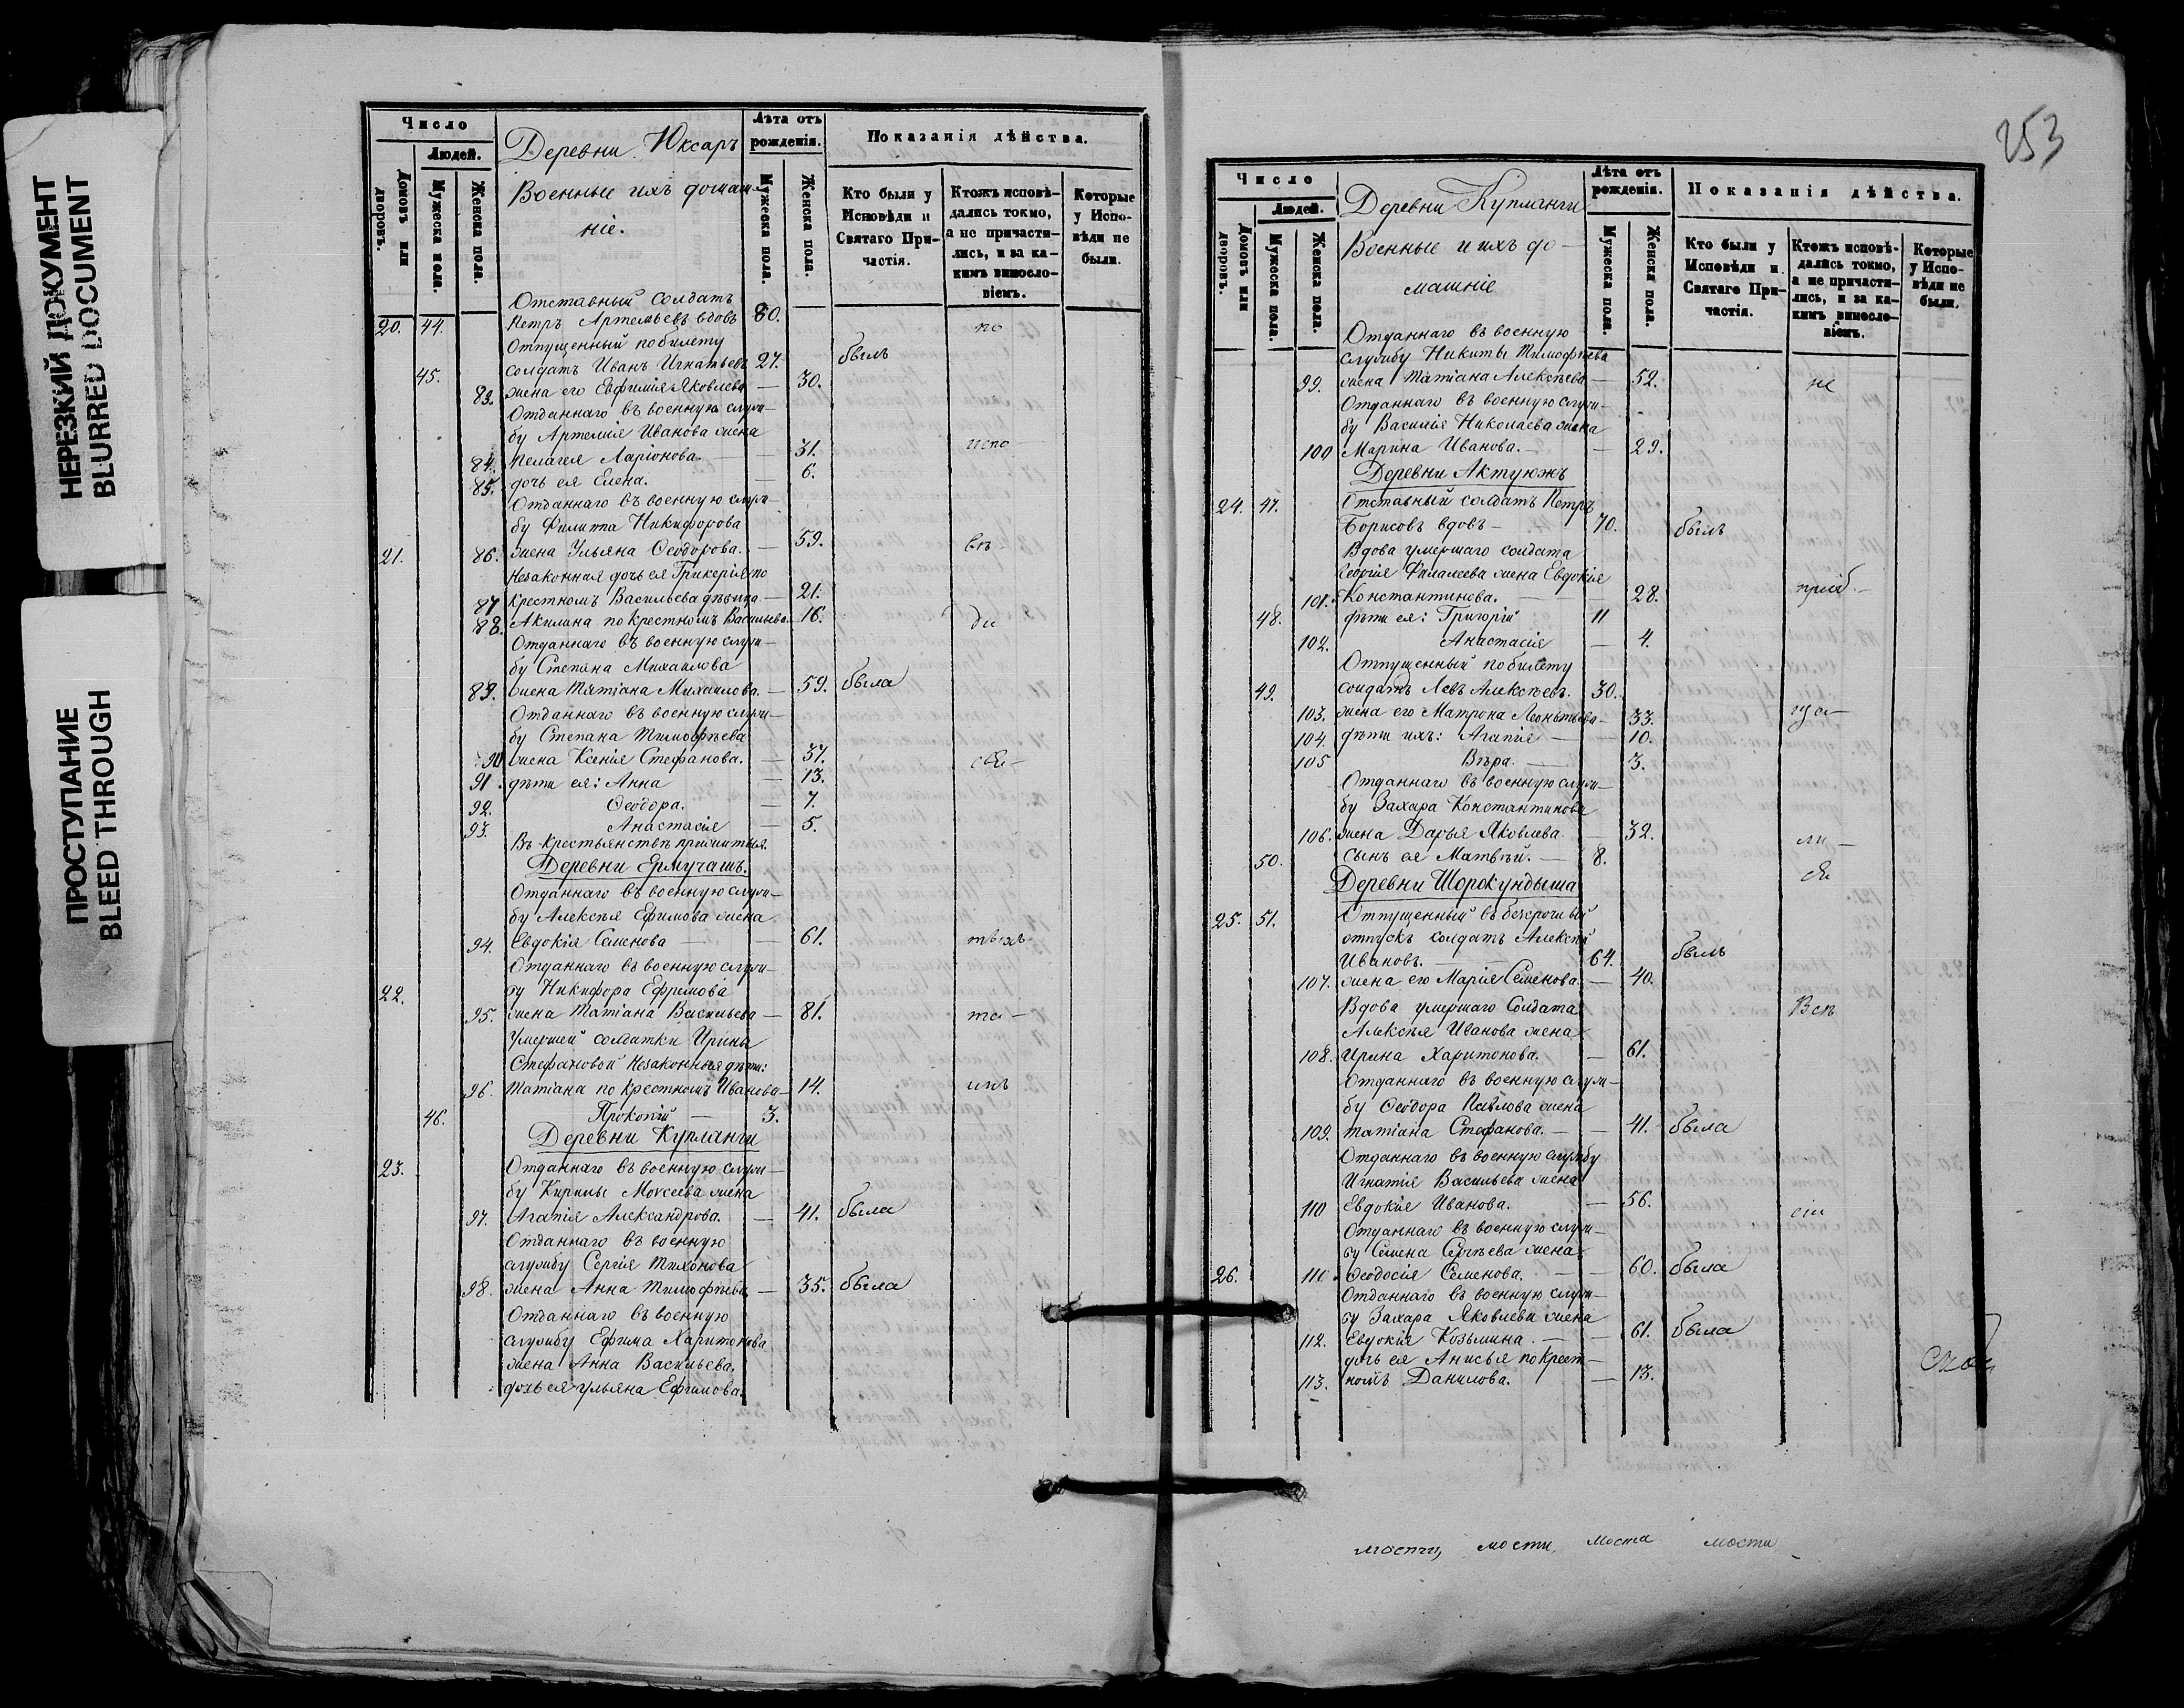 НЕРЕЗКИЙ ДОКУМЕНТ
BLURRED DOCUMENT
ПРОСТУПАНИЕ
BLEED THROUGH
Число
Людей.
Домовъ или дворовъ.
Мужеска пола.
Женска пола.
Деревни Юксаръ
Военные ихъ домаш-
ніе.
Лѣта отъ рожденія.
Мужеска пола.
Женска пола.
Показанія дѣйства.
Кто были у Исповѣди и Святаго При-частія.
Ктожъ исповѣ-дались токмо, а не причасти-лись, и за ка-кимъ виносло-віемъ.
Которые у Испо-вѣди не были.
Отставный солдатъ
20. 44. Петръ Артемьевъ вдовъ 80. по
Отпущенный по билету
45. солдатъ Иванъ Игнатьевъ 27. былъ
83. жена его Евфимія Яковлева — 30.
Отданнаго въ военную служ-
бу Артемія Иванова жена
84. Пелагея Ларіонова. — 31. испо
85. дочь ея Елена. — 6.
Отданнаго въ военную служ-
бу Филиппа Никифорова
21. 86. жена Ульяна Ѳеодорова. — 59. вѣ
Незаконная дочь ея Гликерія по
87 крестномъ Васильева дѣвица — 21.
88. Акилина по крестномъ Васильева — 16. ди
Отданнаго въ военную служ-
бу Степана Михаилова
89. жена Татіана Михаилова. — 59. была
Отданнаго въ военную служ-
бу Степана Тимоѳѣева
90 жена Ксенія Стефанова. — 37. свя-
91. дѣти ея: Анна — 13.
92. Ѳеодора. — 7.
93. Анастасія — 5.
Въ крестьянствѣ
Деревни Ермучашъ.
Отданнаго въ военную служ-
бу Алексѣя Ефимова жена
94. Евдокія Семенова — 61. тыхъ
Отданнаго въ военную служ-
22. бу Никифора Ефремова
95. жена Татіана Васильева — 81. та-
Умершей солдатки Ирины
Стефановой незаконныя дѣти:
96. Татіана по крестномъ Иванова — 14. инъ
46. Прокопій — 3.
Деревни Купланги
23. Отданнаго въ военную служ-
бу Кирилы Моѵсеева жена
97. Агапія Александрова. — 41. была
Отданнаго въ военную
службу Сергія Тихонова
98. жена Анна Тимоѳѣева — 35. была
Отданнаго въ военную
службу Ефима Харитонова
жена Анна Васильева.
дочь ея Ульяна Ефимова.
253
Число
Людей.
Домовъ или дворовъ.
Мужеска пола.
Женска пола.
Деревни Купланги
Военные и ихъ до-
машніе
Лѣта отъ рожденія.
Мужеска пола.
Женска пола.
Показанія дѣйства.
Кто были у Исповѣди и Святаго При-частія.
Ктожъ исповѣ-дались токмо, а не причасти-лись, и за ка-кимъ виносло-віемъ.
Которые у Испо-вѣди не были.
Отданнаго въ военную
службу Никиты Тимофѣева
99. жена Татіана Алексѣева — 52. не
Отданнаго въ военную служ-
бу Василія Николаева жена
100 Марина Иванова. — 29.
Деревни Актуюжъ
24. 47. Отставный солдатъ Петръ
Борисовъ вдовъ — 70. былъ
Вдова умершаго солдата
Георгія Фалалеева жена Евдокія
101. Константинова. — 28. пріоб-
48. дѣти ея: Григорій 11
102. Анастасія — 4.
Отпущенный по билету
49. солдатъ Левъ Алексѣевъ. 30.
103. жена его Матрона Леонтьева — 33. ща-
104. дѣти ихъ: Агапія — 10.
105 Вѣра. — 3.
Отданнаго въ военную служ-
бу Захара Константинова
106. жена Дарья Яковлева — 32. ли-
50. сынъ ея Матвѣй. — 8. ся
Деревни Шорокундыша
25. 51. Отпущенный въ безсрочный
отпускъ солдатъ Алексѣй
Ивановъ. — 64. былъ
107. жена его Марія Семенова. — 40.
Вдова умершаго Солдата Всѣ
Алексѣя Иванова жена
108. Ирина Харитонова. — 61.
Отданнаго въ военную служ-
бу Ѳеодора Павлова жена
109. Татіана Стефанова. — 41. была
Отданнаго въ военную службу
Игнатія Васильева жена
110 Евдокія Иванова. — 56.
Отданнаго въ военную служ-
бу Семена Сергѣева жена
26. 111. Ѳеодосія Семенова. — 60. была
Отданнаго въ военную служ-
бу Захара Яковлева жена
112. Евдокія Козьмина. — 61. была
дочь ея Анисья по крест-
113. номъ Данилова. — 13.
мости, мости, моста мости